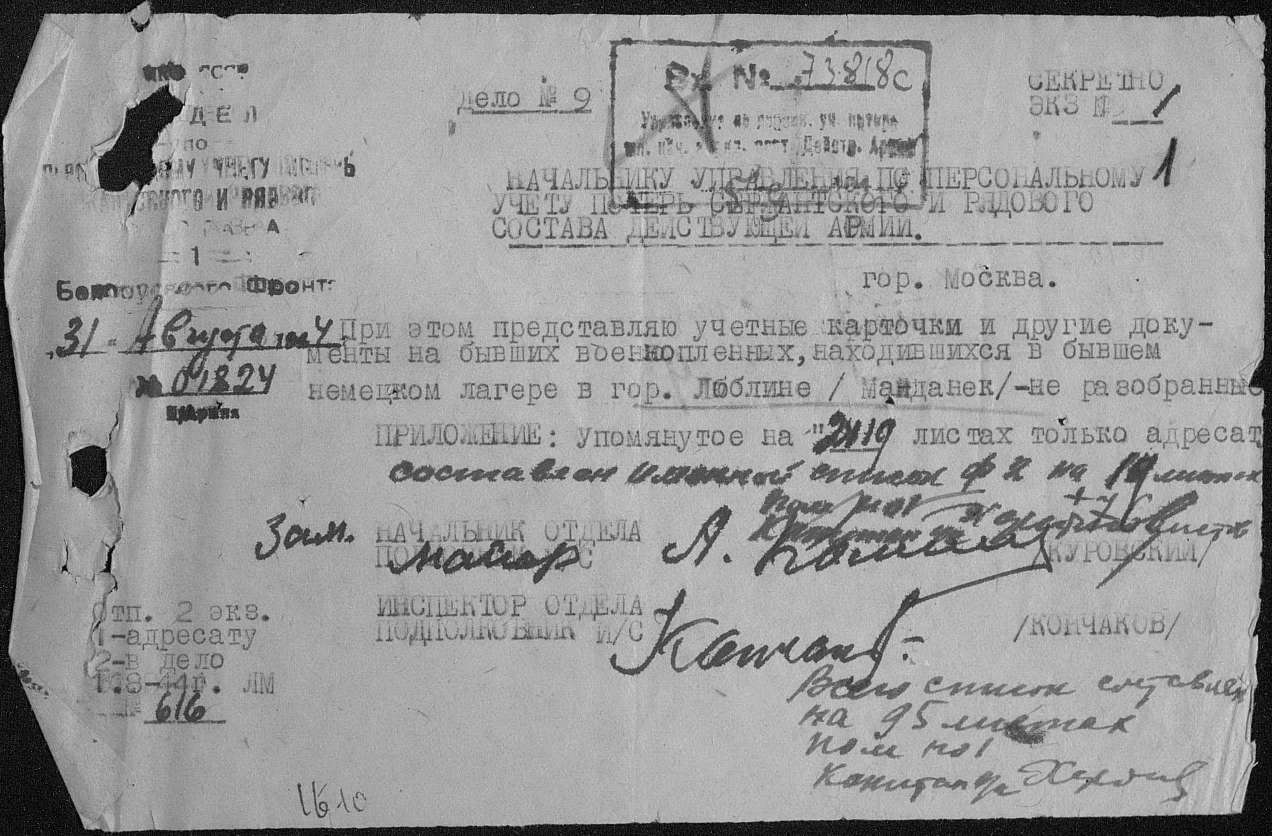 НКО СССР
ОТДЕЛ
по
УЧЕТУ ПОТЕРЬ
И РЯДОВОГО
1
Белорусского Фронта
31 Августа 1944
№ 01824
Украина
Дело № 9
Вх № 73818с
Действ. Армии
СЕКРЕТНО
ЭКЗ № 1
1
НАЧАЛЬНИКУ УПРАВЛЕНИЯ ПО ПЕРСОНАЛЬНОМУ
УЧЕТУ ПОТЕРЬ СЕРЖАНТСКОГО И РЯДОВОГО
СОСТАВА ДЕЙСТВУЮЩЕЙ АРМИИ.
гор. Москва.
При этом представляю учетные карточки и другие доку-
менты на бывших военнопленных, находившихся в бывшем
немецком лагере в гор. Люблине / Манданек/-не разобранные
ПРИЛОЖЕНИЕ: Упомянутое на "2419 листах только адресат
составлен именной список ф 2 на 19 листах
пом
Зам. НАЧАЛЬНИК ОТДЕЛА
майор
А.
/КУРОВСКИЙ/
ИНСПЕКТОР ОТДЕЛА
ПОДПОЛКОВНИК И/С
Кончаков
/КОНЧАКОВ/
Отп. 2 экз.
1-адресату
2-в дело
1.9-44г. ЛМ
№ 616
Всего список составлен
на 95 листах
пом но1
капитан
1610